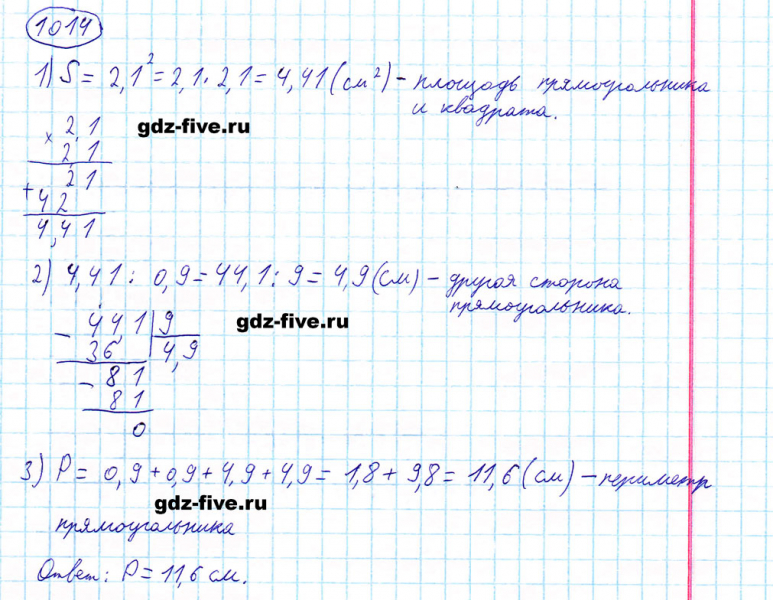 1014
1) S = 2,1² = 2,1 · 2,1 = 4,41 (см²) – площадь прямоугольника
и квадрата.
gdz-five.ru
× 2,1
2,1
21
+ 42
4,41
2) 4,41 : 0,9 = 44,1 : 9 = 4,9 (см) – другая сторона
прямоугольника.
gdz-five.ru
– 441 | 9
36 | 4,9
– 81
81
0
3) P = 0,9 + 0,9 + 4,9 + 4,9 = 1,8 + 9,8 = 11,6 (см) – периметр
gdz-five.ru
прямоугольника
Ответ: P = 11,6 см.